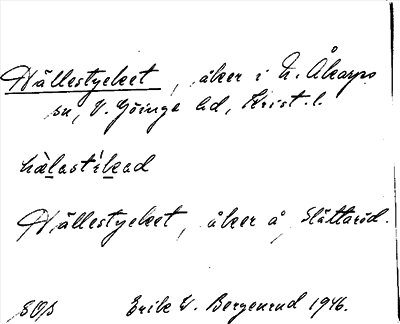 Hällestycket, åker i N. Åkarps
sn, V. Göinge hd, Krist. l.
Hällestycket, åker å Slättaröd.
Erik W. Bergenrud 1946.